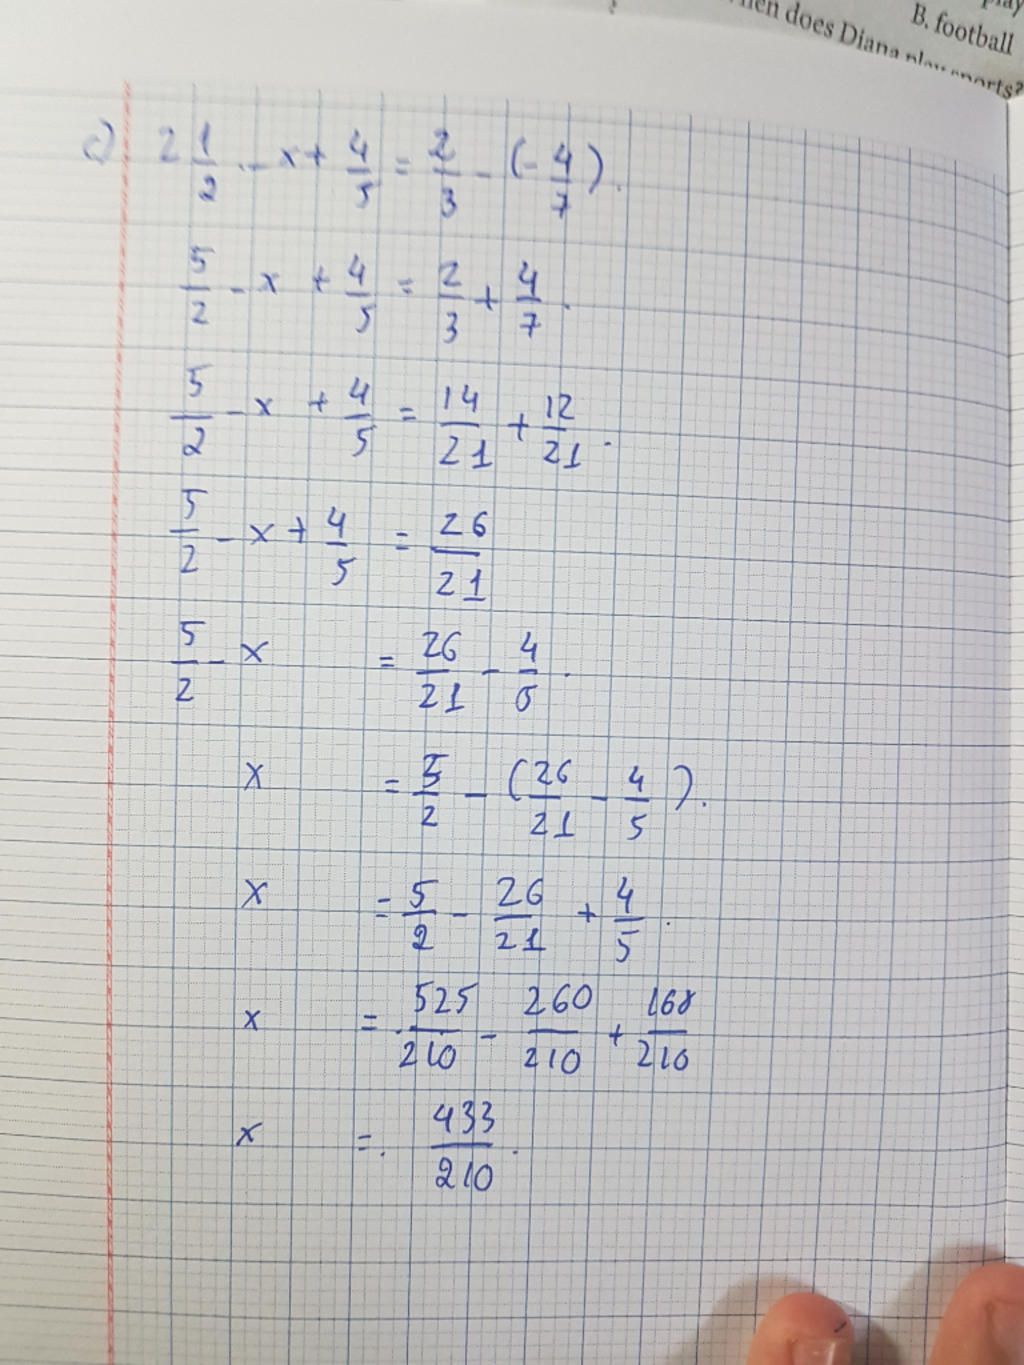 play
B. football
when does Diana play sports?
c) 2 1/2 - x + 4/5 = 2/3 - (-4/7).
5/2 - x + 4/5 = 2/3 + 4/7.
5/2 - x + 4/5 = 14/21 + 12/21.
5/2 - x + 4/5 = 26/21
5/2 - x = 26/21 - 4/5.
x = 5/2 - (26/21 - 4/5).
x = 5/2 - 26/21 + 4/5.
x = 525/210 - 260/210 + 168/210
x = 433/210.